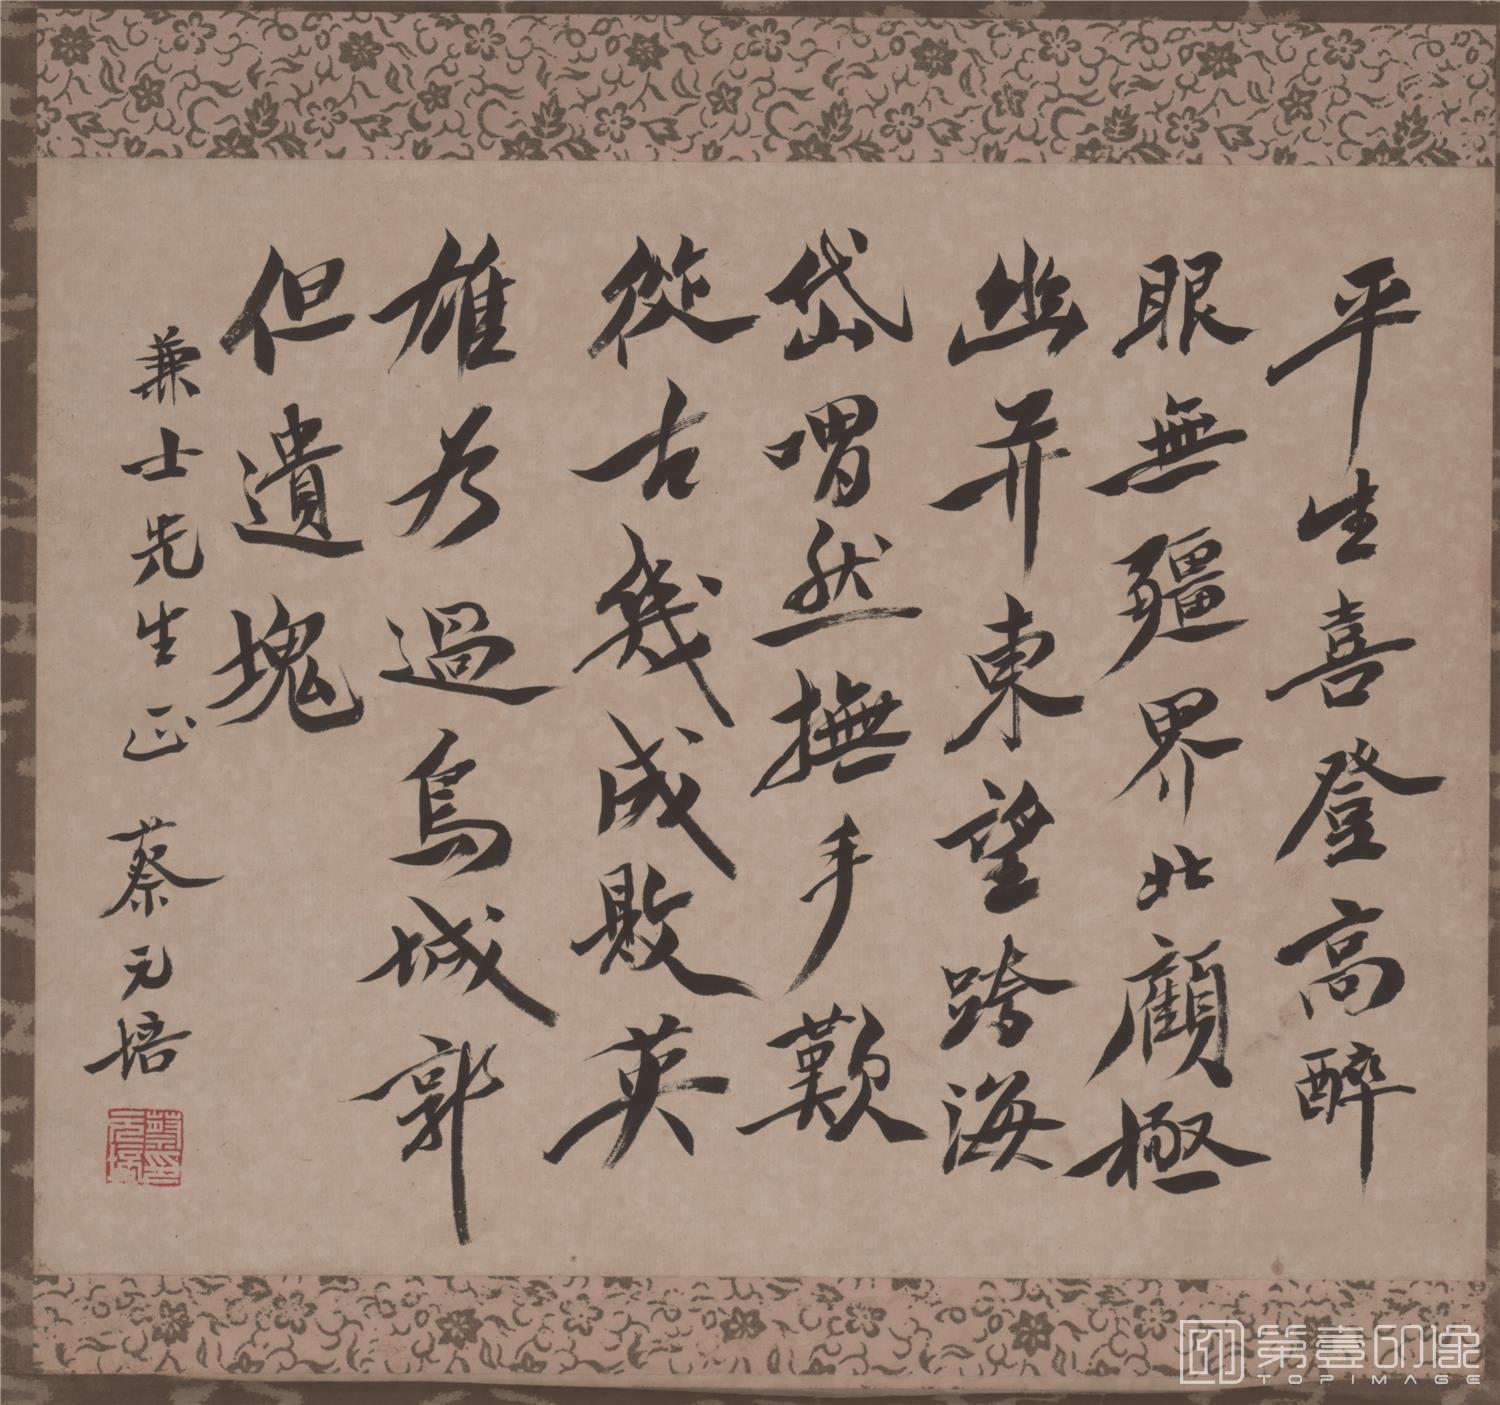 平生喜登高醉
眼無疆界北顧極
幽并東望跨海
岱喟然撫手歎
從古幾成敗英
雄為過鳥城郭
但遺塊
兼士先生正 蔡元培
第壹印像
TOPIMAGE